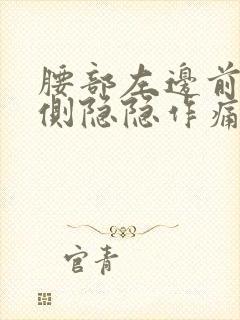 腰部左邊前
側隐隐作痛
官青